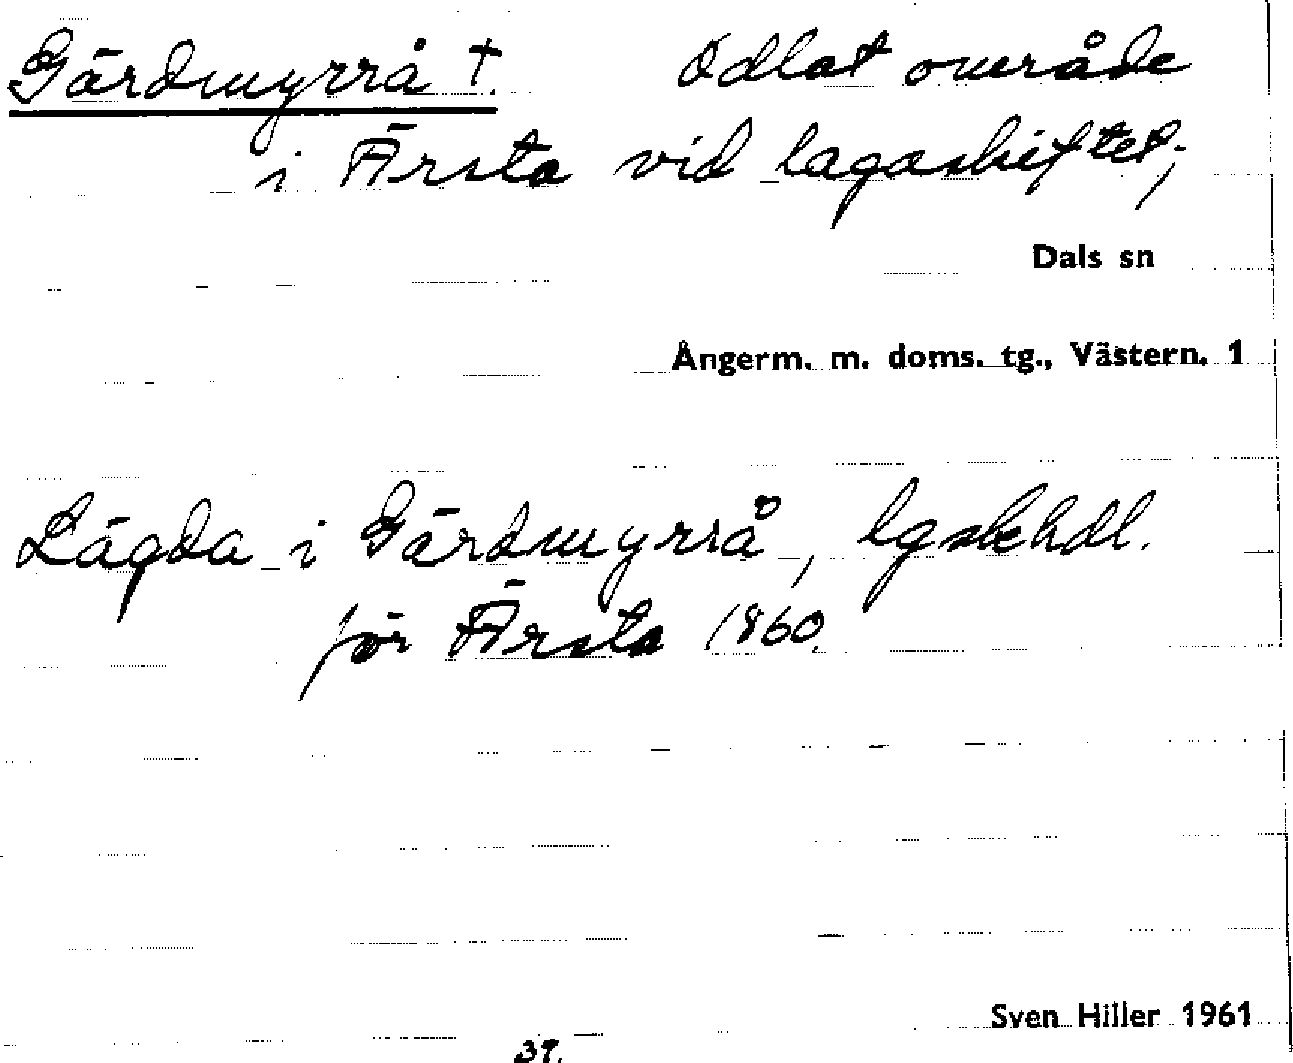 Gärdmyrrå †. Odlat område
i Ärsta vid lagaskiftet;
Dals sn
Ångerm. m. doms. tg., Västern. 1
Lägda i Gärdmyrrå, lgskhdl.
för Ärsta 1860.
Sven Hiller 1961
39.